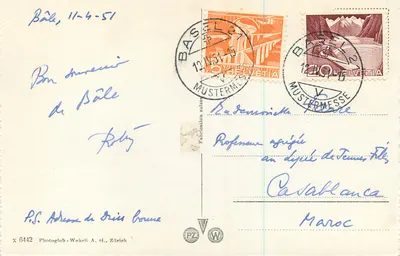 Bâle, 11-4-51
Bon souvenir
de Bâle
P.S. Adresse de Driss bonne
z 6442 Photoglob-Wehrli A. G., Zürich
BASEL 21
12.IV.51-15
MUSTERMESSE
HELVETIA
BASEL 21
MUSTERMESSE
HELVETIA
10
Mademoiselle
Professeur agrégée
au lycée de Jeunes Filles
Casablanca
Maroc
PZ W